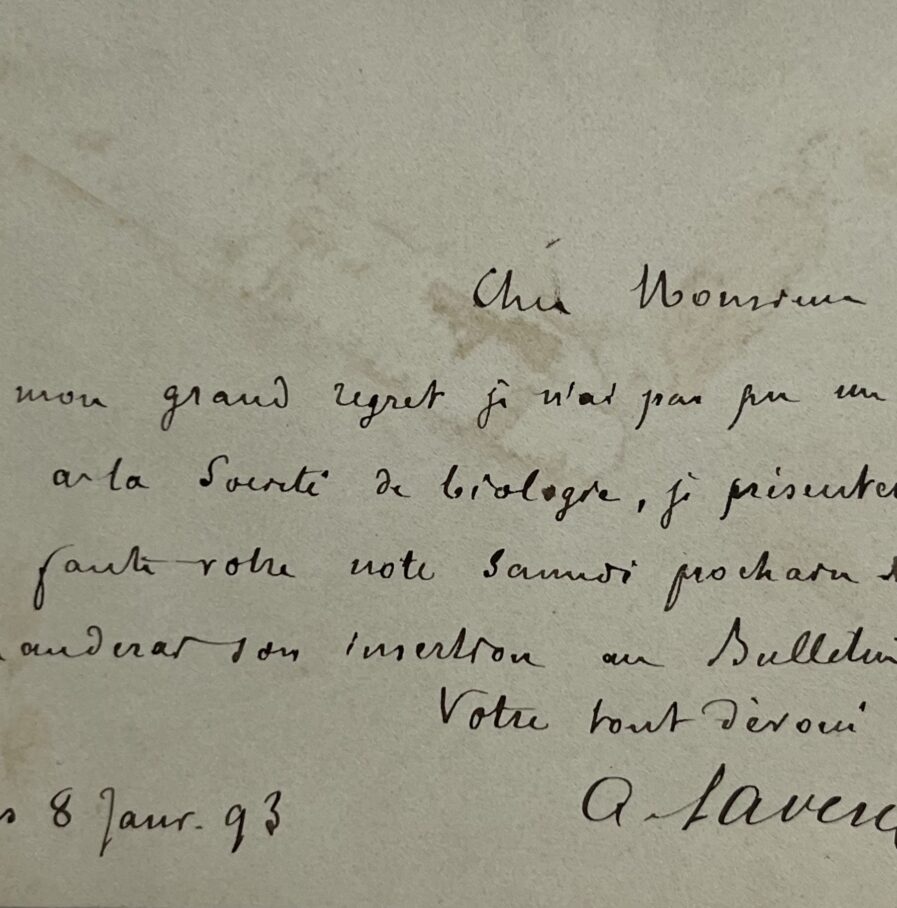 Cher Monsieur
mon grand regret je n'ai pas pu me
à la Société de biologie, je présenter
faute votre note Samedi prochain
anderai son insertion au Bulletin
Votre tout dévoué
A. Lavera
8 Janv. 93